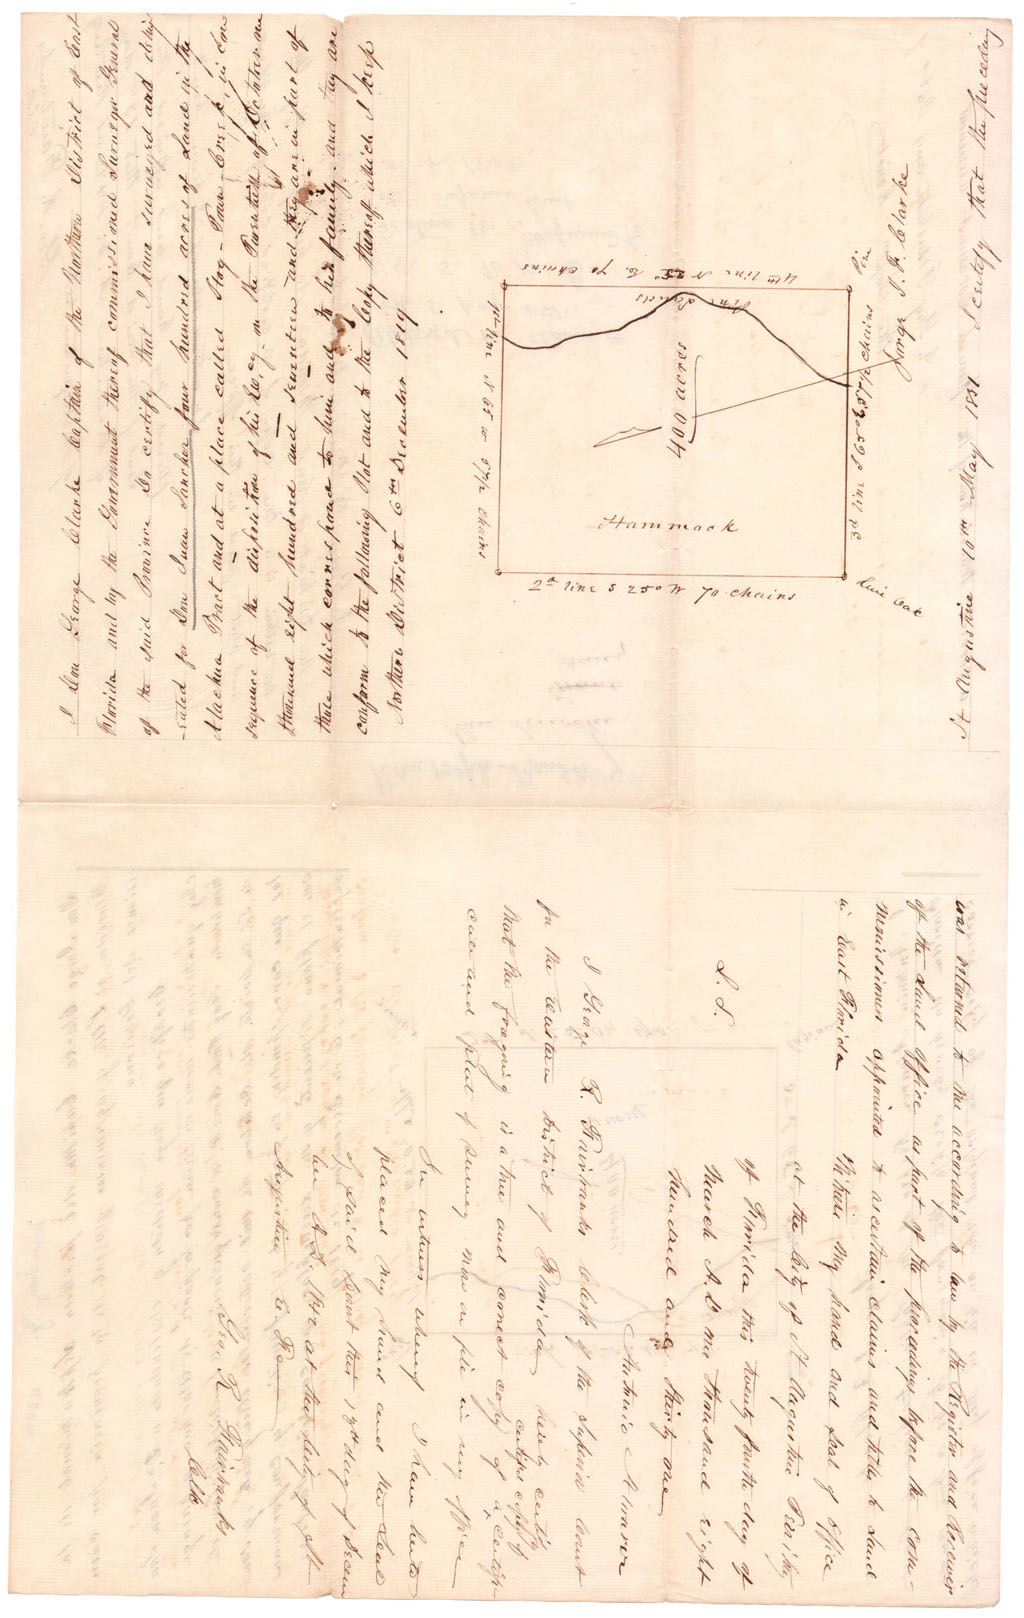 I Don George Clarke Captain of the Northern District of East
Florida and by the Government thereof commissioned Surveyor General
of the said Province Do certify that I have surveyed and
-eated for Don Juan Sanchez four hundred acres of Land in the
Alachua Tract and at a place called Hog-Town Creek, in con
sequence of the disposition of his Excy. on the Purchase of October one
thousand eight hundred and seventeen and they are in part of
those which correspond to him and to his family and they are
conform to the following Plat and to the Copy thereof which I keep
Northern District 6th December 1819
4th line N 25° E. 70 chains
Pine Lands
1st line N 65 W 57½ chains
400 acres
3d line S 65° E 57½ chains
Pine
Hammock
2d line S 25° W 70 chains
Live Oak
George J. F. Clarke
St Augustine 10th May 1831 I certify that the preceding
was returned to me according to law by the Register and Receiver
of the Land Office as part of the proceedings before the com-
missioners appointed to ascertain claims and title to Land
in East Florida Witness my hand and seal of office
at the City of St Augustine
of Florida this twenty fourth day of
L. S. March A. D. one thousand eight
hundred and thirty one
Antonio Alvarez
I George R. Fairbanks Clerk of the Superior Court
for the Eastern District of Florida hereby certify
that the foregoing is a true and correct copy of certified copy of a certifi-
cate and plat of survey now on file in my office
In witness whereof I have hereto
placed my hand and the seal
of said Court this 18th day of Decem
ber A.D. 1842 at the City of St
Augustine E.
Geo. R. Fairbanks
Clk